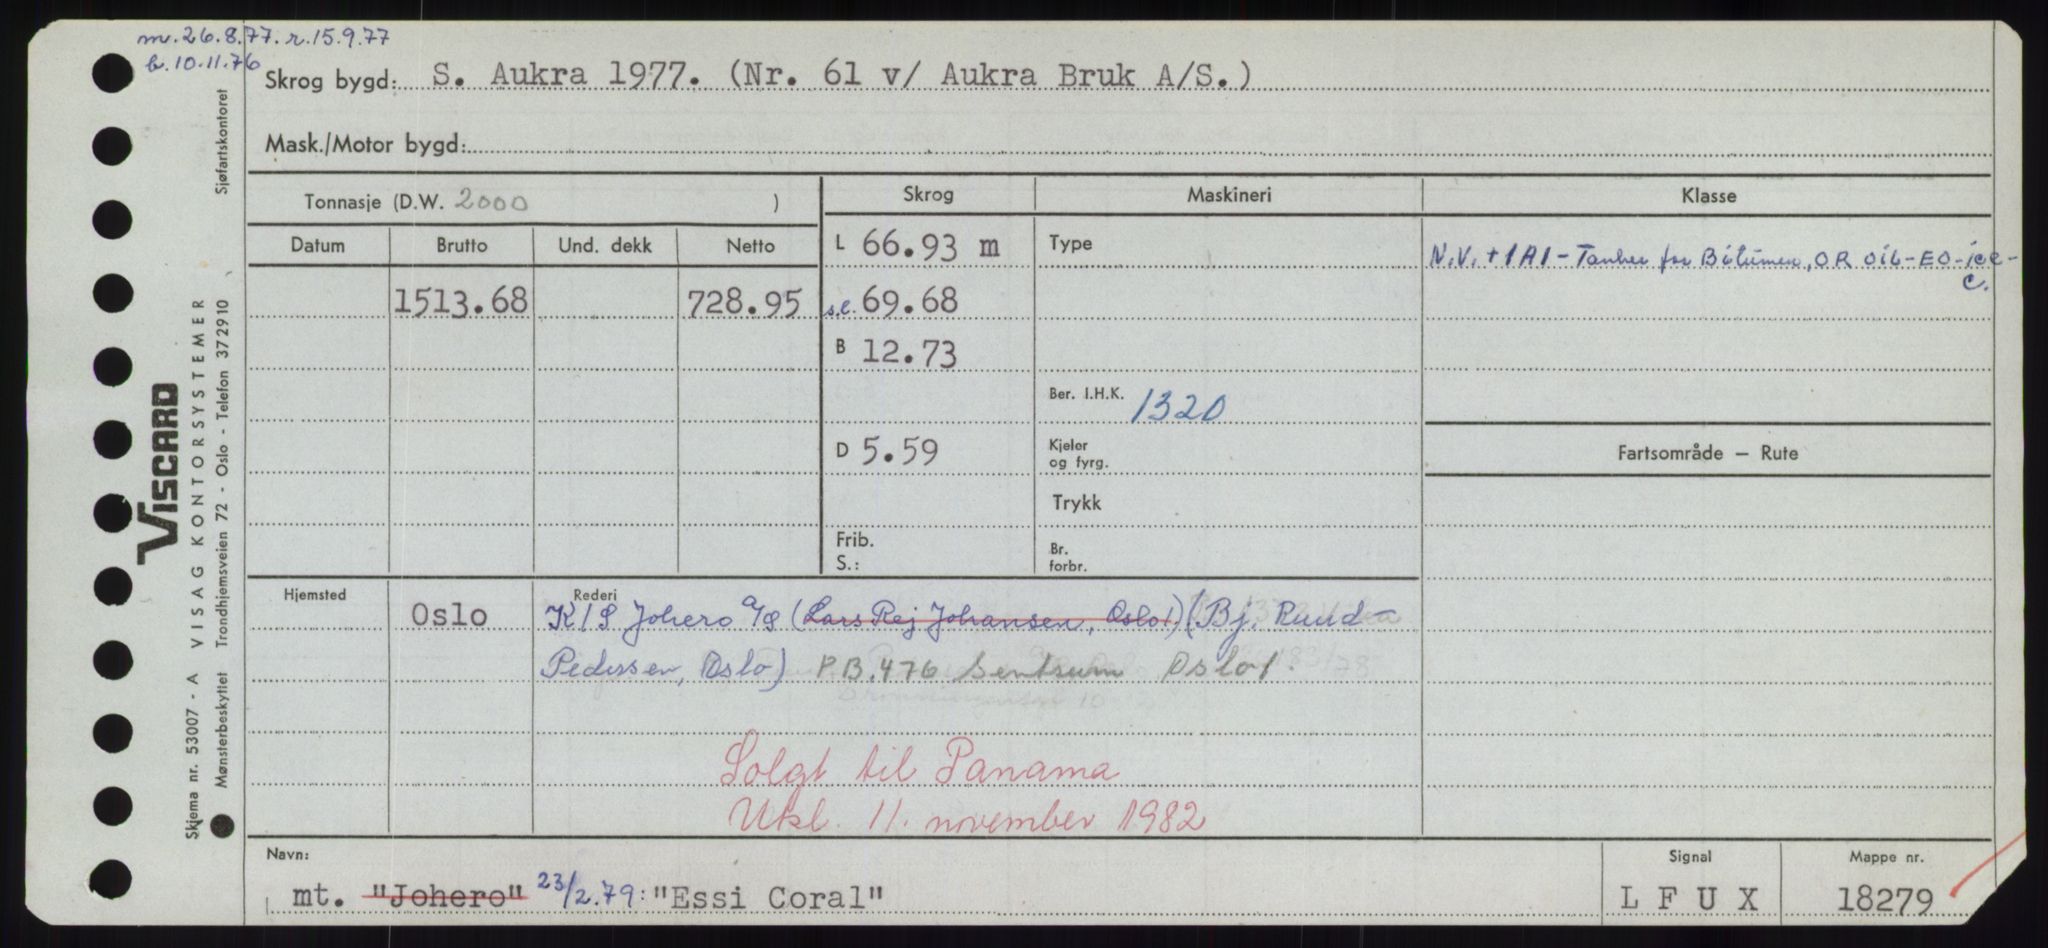 m. 26.8.77. r. 15.9.77
b. 10.11.76
Skrog bygd: S. Aukra 1977. (Nr. 61 v/ Aukra Bruk A/S.)
Mask./Motor bygd:
Tonnasje (D.W. 2000 )
Skrog
Maskineri
Klasse
Datum
Brutto
Und. dekk
Netto
1513.68
728.95
L 66.93 m
s.l. 69.68
B 12.73
D 5.59
Frib.
S.:
Type
Ber. I.H.K. 1320
Kjeler
og fyrg.
Trykk
Br.
forbr.
N.V. + 1A1 - Tanker for Bitumen, OR OIL-EO-ice-
C.
Fartsområde — Rute
Hjemsted
Oslo
Rederi
K/S Johero A/S (Lars Rej Johansen, Oslo1) (Bj. Ruud-
Pedersen, Oslo) P.B. 476 Sentrum Oslo 1.
Solgt til Panama
Utkl. 11. november 1982
Navn:
mt. "Johero" 23/2.79: "Essi Coral"
Signal
L F U X
Mappe nr.
18279
VISCARD
Skjema nr. 53007 - A VISAG KONTORSYSTEMER
Mønsterbeskyttet Trondhjemsveien 72 - Oslo - Telefon 372910 Sjøfartskontoret